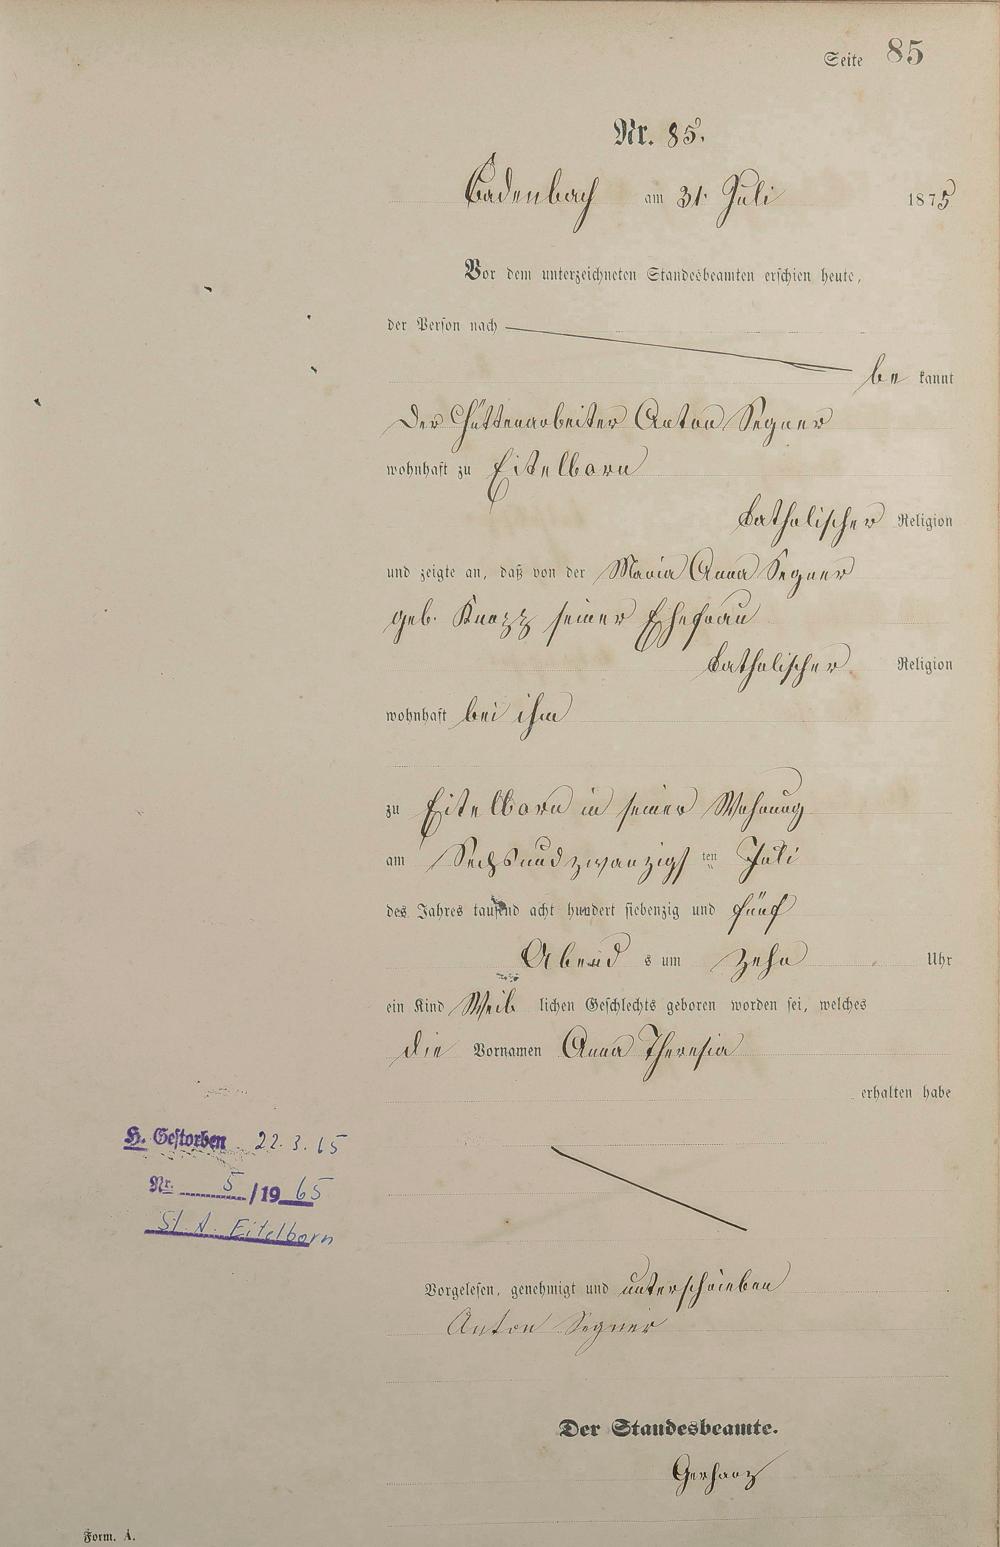 Seite 85
Nr. 85.
Cadenbach am 31. Juli 1875
Vor dem unterzeichneten Standesbeamten erschien heute,
der Person nach
be kannt
der Hüttenarbeiter Anton Segner
wohnhaft zu Eitelborn
katholischer Religion
und zeigte an, daß von der Maria Anna Segner
geb. Knopp seiner Ehefrau
katholischer Religion
wohnhaft bei ihm
zu Eitelborn in seiner Wohnung
am Sechsundzwanzigsten Juli
des Jahres tausend acht hundert siebenzig und fünf
Abend s um zehn Uhr
ein Kind Weib lichen Geschlechts geboren worden sei, welches
die Vornamen Anna Theresia
erhalten habe
H. Gestorben 22.3.65
Nr. 5/1965
St. A. Eitelborn
Vorgelesen, genehmigt und unterschrieben
Anton Segner
Der Standesbeamte.
Gerharz
Form. A.